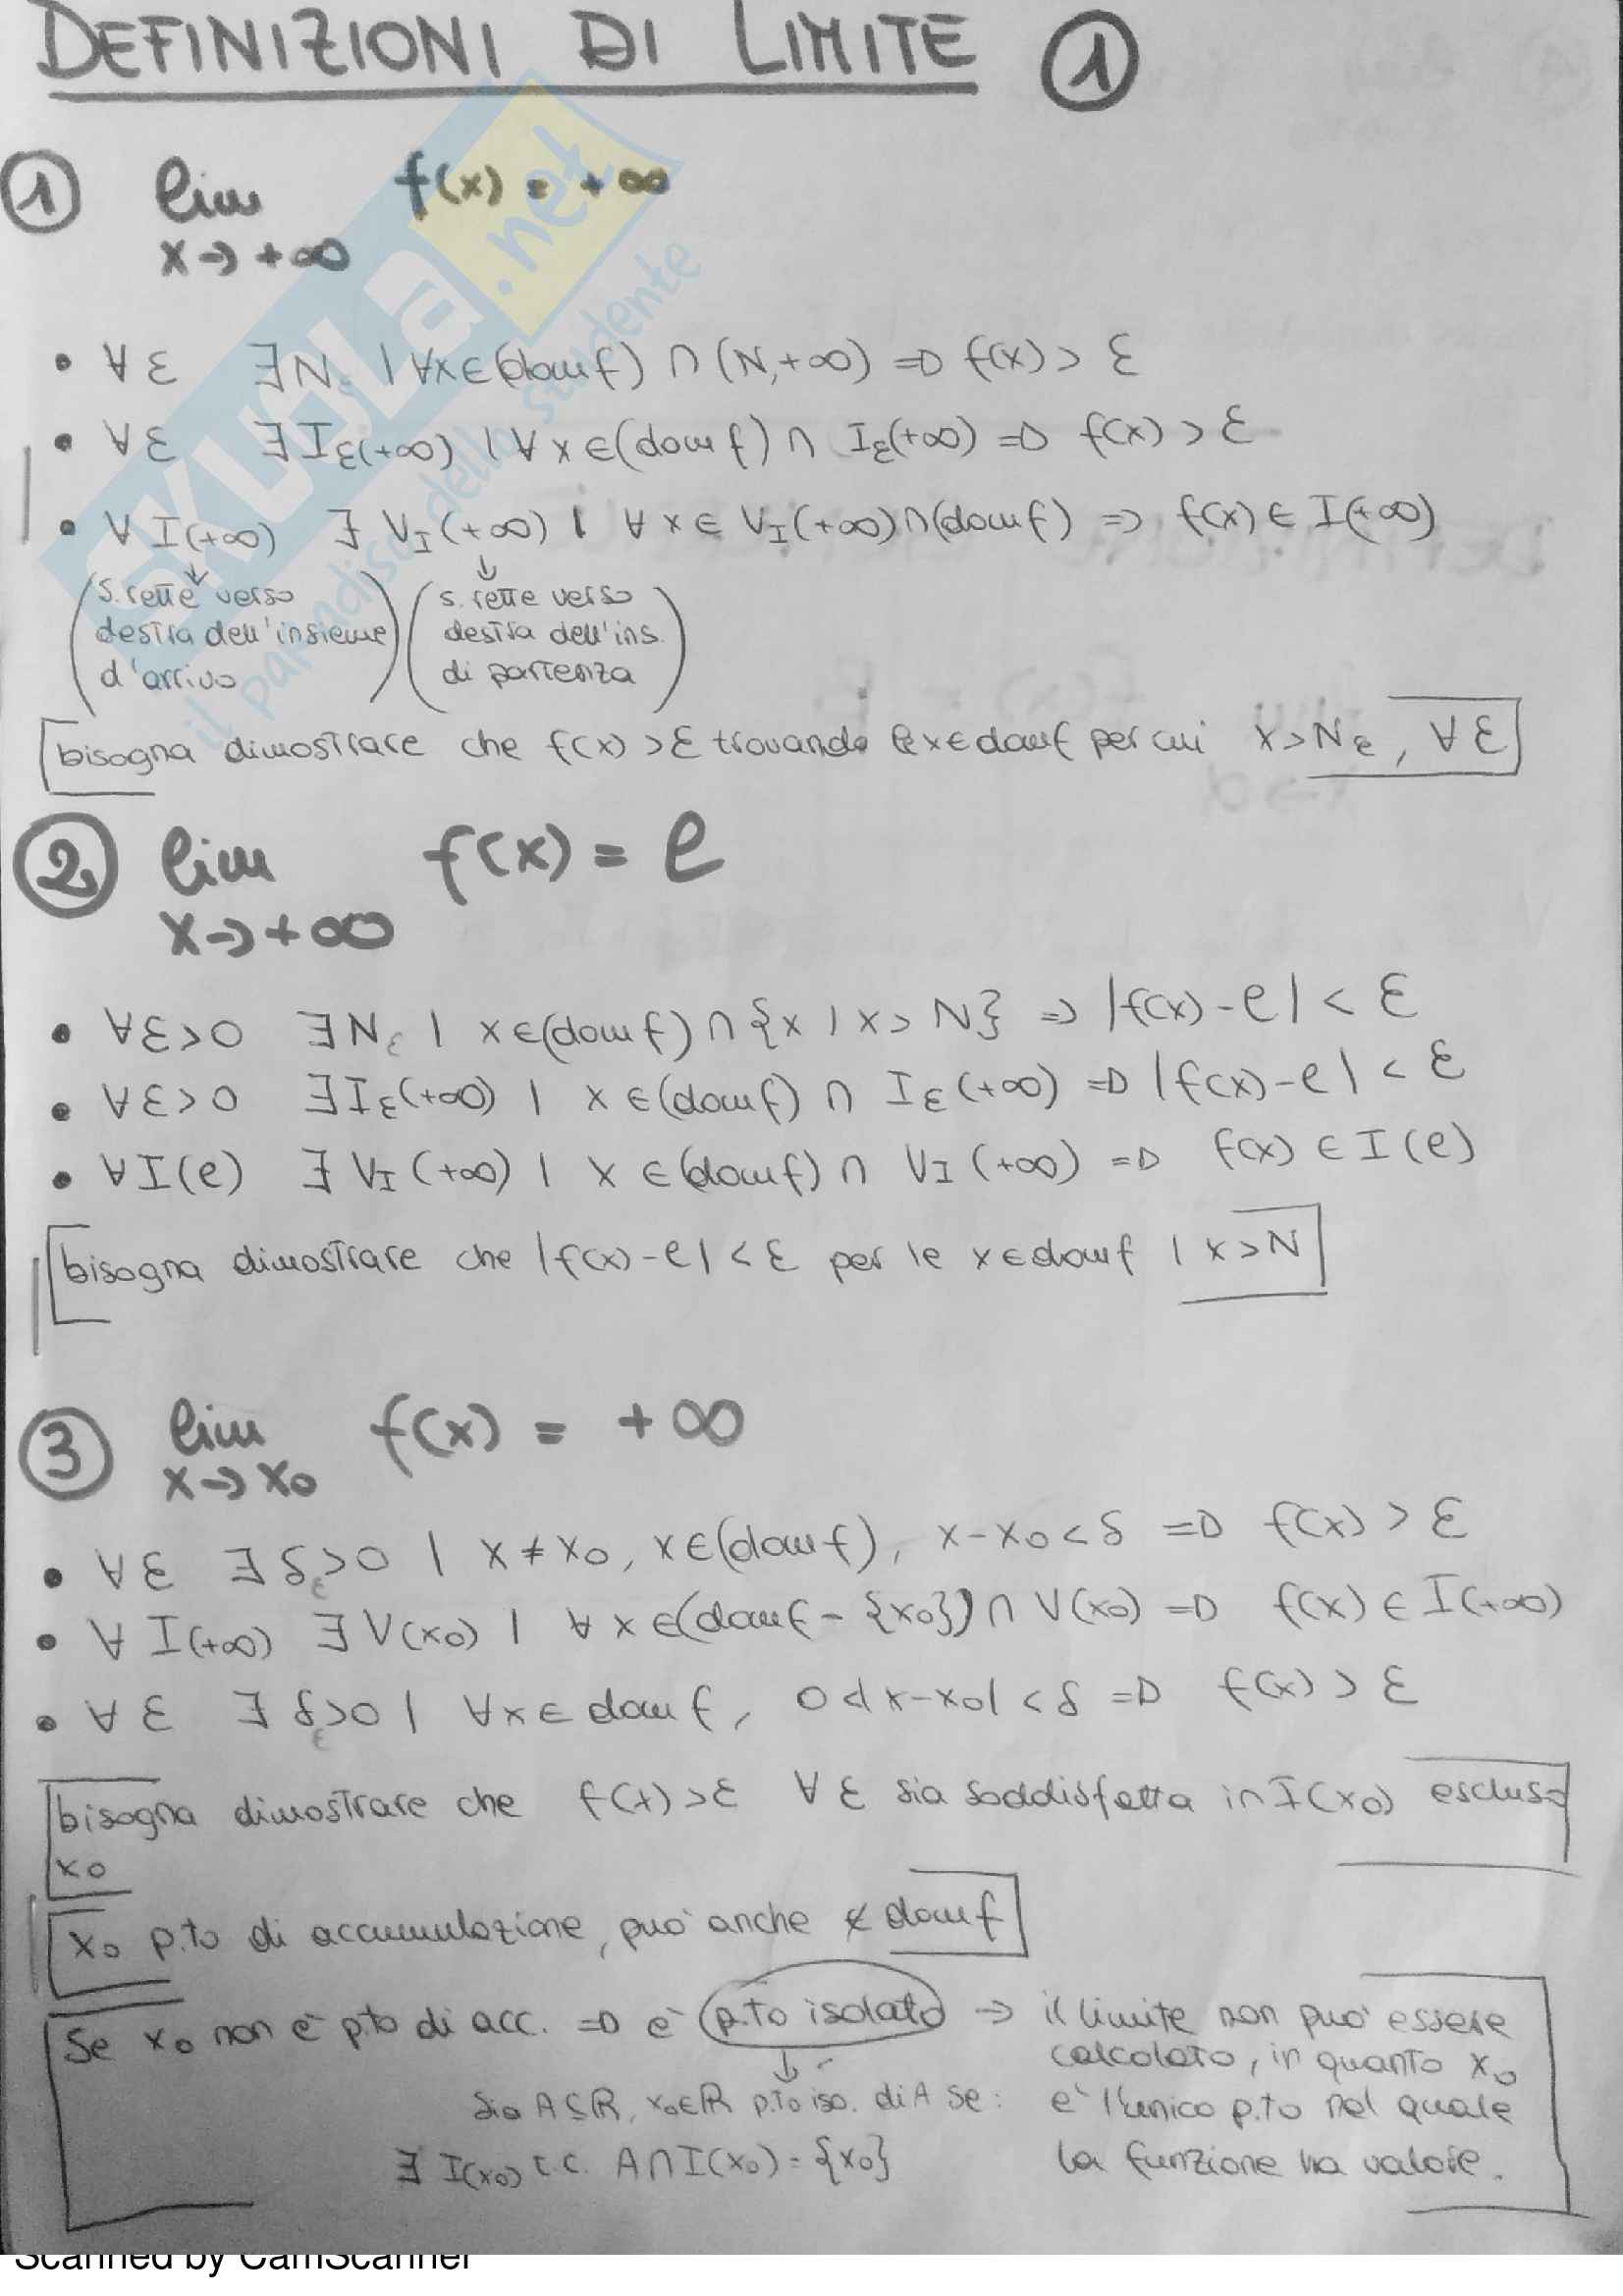 DEFINIZIONI DI LIMITE ①
① lim f(x) = +∞
x→+∞
• ∀ε ∃Nε | ∀x∈(domf) ∩ (N,+∞) => f(x) > ε
• ∀ε ∃Iε(+∞) | ∀x∈(domf) ∩ Iε(+∞) => f(x) > ε
• ∀I(+∞) ∃ V_I(+∞) | ∀x∈ V_I(+∞)∩(domf) => f(x) ∈ I(+∞)
↓ ↓
(s. rette verso destra dell'insieme d'arrivo) (s. rette verso destra dell'ins. di partenza)
bisogna dimostrare che f(x) >ε trovando le x∈domf per cui x>Nε, ∀ε
② lim f(x) = l
x→+∞
• ∀ε>0 ∃Nε | x∈(domf)∩{x | x> N} => |f(x)-l| < ε
• ∀ε>0 ∃Iε(+∞) | x∈(domf) ∩ Iε(+∞) => |f(x)-l| < ε
• ∀I(l) ∃V_I(+∞) | x∈(domf) ∩ V_I(+∞) => f(x) ∈ I(l)
bisogna dimostrare che |f(x)-l| < ε per le x∈domf | x>N
③ lim f(x) = +∞
x→x₀
• ∀ε ∃δε>0 | x≠x₀, x∈(domf), x-x₀<δ => f(x) > ε
• ∀I(+∞) ∃V(x₀) | ∀x∈(domf-{x₀})∩V(x₀) => f(x) ∈ I(+∞)
• ∀ε ∃δε>0 | ∀x∈domf, 0<|x-x₀|<δ => f(x) > ε
bisogna dimostrare che f(x)>ε ∀ε sia soddisfatta in I(x₀) escluso
x₀
x₀ p.to di accumulazione, può anche ∉ domf
Se x₀ non è p.to di acc. => è p.to isolato → il limite non può essere
↓ calcolato, in quanto x₀
sia A⊆R, x₀∈R p.to iso. di A se: è l'unico p.to nel quale
∃ I(x₀) t.c. A∩I(x₀)={x₀} la funzione ha valore.
SKUOLA.net
il paradiso dello studente
Scanned by CamScanner